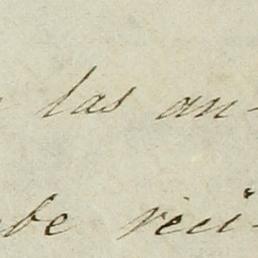 las an-
be reci-